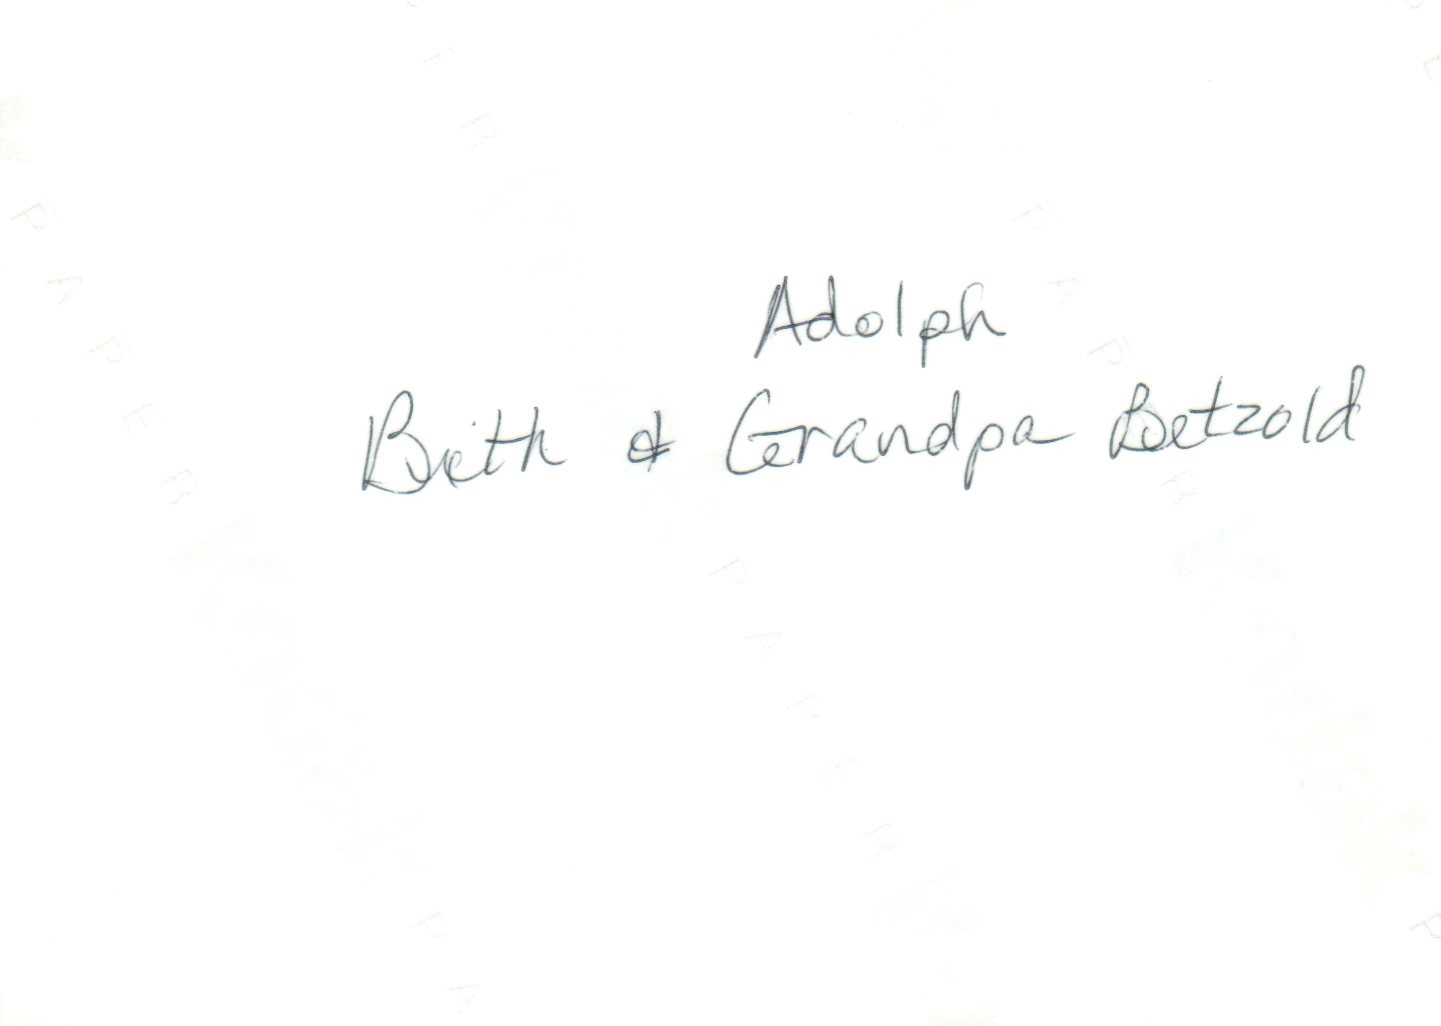 Adolph
Beth & Grandpa Betzold